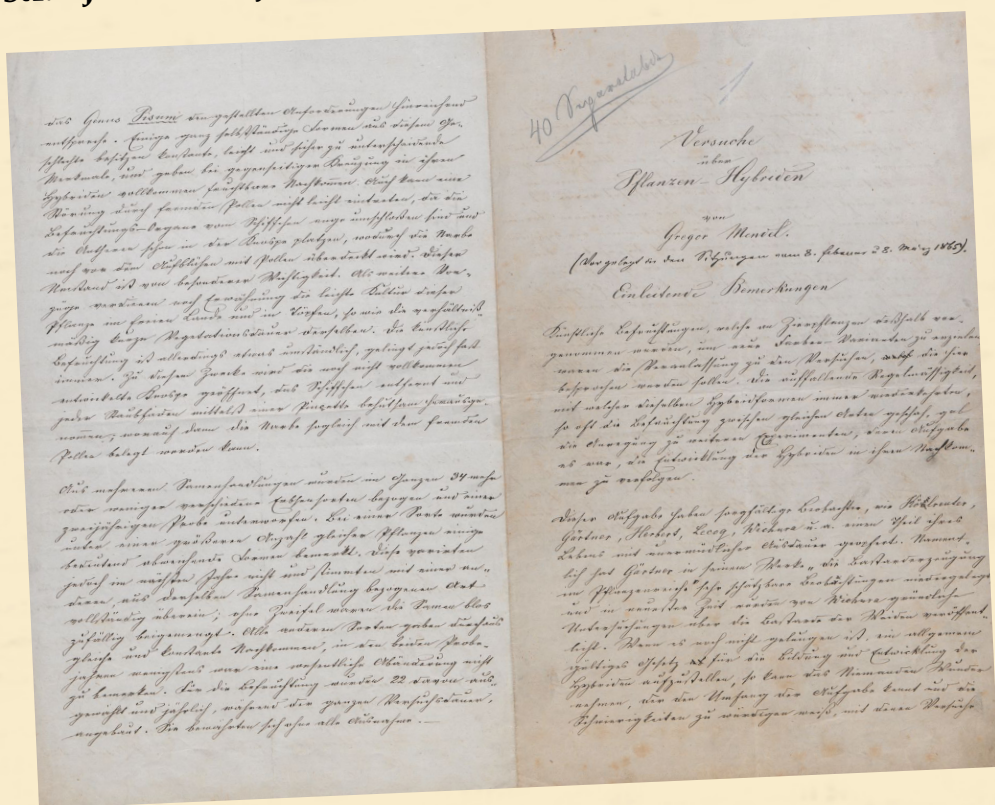 das Genus Pisum den gestellten Anforderungen hinreichend
entspreche. Einige ganz selbstständige Formen aus diesem Ge-
schlechte besitzen constante, leicht und sicher zu unterscheidende
Merkmale, und geben bei gegenseitiger Kreuzung in ihren
Hybriden vollkommen fruchtbare Nachkommen. Auch kann eine
Störung durch fremden Pollen nicht leicht eintreten, da die
Befruchtungs-Organe vom Schiffchen enge umschlossen sind und
die Antheren schon in der Knospe platzen, wodurch die Narbe
noch vor dem Aufblühen mit Pollen überdeckt wird. Dieser
Umstand ist von besonderer Wichtigkeit. Als weitere Vor-
züge verdienen noch Erwähnung die leichte Kultur dieser
Pflanze im freien Lande und in Töpfen, so wie die verhältniß-
mäßig kurze Vegetationsdauer derselben. Die künstliche
Befruchtung ist allerdings etwas umständlich, gelingt jedoch fast
immer. Zu diesem Zwecke wird die noch nicht vollkommen
entwickelte Knospe geöffnet, das Schiffchen entfernt und
jeder Staubfaden mittelst einer Pinzette behutsam herausge-
nommen, worauf dann die Narbe sogleich mit dem fremden
Pollen belegt werden kann.
Aus mehreren Samenhandlungen wurden im Ganzen 34 mehr
oder weniger verschiedene Erbsensorten bezogen und einer
zweijährigen Probe unterworfen. Bei einer Sorte wurden
unter einer größeren Anzahl gleicher Pflanzen einige
bedeutend abweichende Formen bemerkt. Diese variirten
jedoch im nächsten Jahre nicht und stimmten mit einer an-
deren aus derselben Samenhandlung bezogenen Art
vollständig überein; ohne Zweifel waren die Samen blos
zufällig beigemengt. Alle anderen Sorten gaben durchaus
gleiche und constante Nachkommen, in den beiden Probe-
jahren wenigstens war eine wesentliche Abänderung nicht
zu bemerken. Für die Befruchtung wurden 22 davon aus-
gewählt und jährlich, während der ganzen Versuchsdauer,
angebaut. Sie bewährten sich ohne alle Ausnahme.
40 Separatabdr
1
Versuche
über
Pflanzen-Hybriden
von
Gregor Mendel.
(Vorgelegt in den Sitzungen vom 8. Februar 8. März 1865).
Einleitende Bemerkungen
Künstliche Befruchtungen, welche an Zierpflanzen deßhalb vor-
genommen wurden, um neue Farben-Varianten zu erzielen
waren die Veranlassung zu den Versuchen, welche die hier
besprochen werden sollen. Die auffallende Regelmässigkeit,
mit welcher dieselben Hybridformen immer wiederkehrten,
so oft die Befruchtung zwischen gleichen Arten geschah, gab
die Anregung zu weiteren Experimenten, deren Aufgabe
es war, die Entwicklung der Hybriden in ihren Nachkom-
men zu verfolgen.
Dieser Aufgabe haben sorgfältige Beobachter, wie Kölreuter,
Gärtner, Herbert, Lecoq, Wichura u.a. einen Theil ihres
Lebens mit unermüdlicher Ausdauer geopfert. Nament-
lich hat Gärtner in seinem Werke „die Bastarderzeugung
im Pflanzenreiche" sehr schätzbare Beobachtungen niedergelegt
und in neuester Zeit wurden von Wichura gründliche
Untersuchungen über die Bastarde der Weiden veröffent-
licht. Wenn es noch nicht gelungen ist, ein allgemein
gültiges Gesetz für die Bildung und Entwicklung der
Hybriden aufzustellen, so kann das Niemanden Wunder
nehmen, der den Umfang der Aufgabe kennt und die
Schwierigkeiten zu würdigen weiß, mit denen Versuche